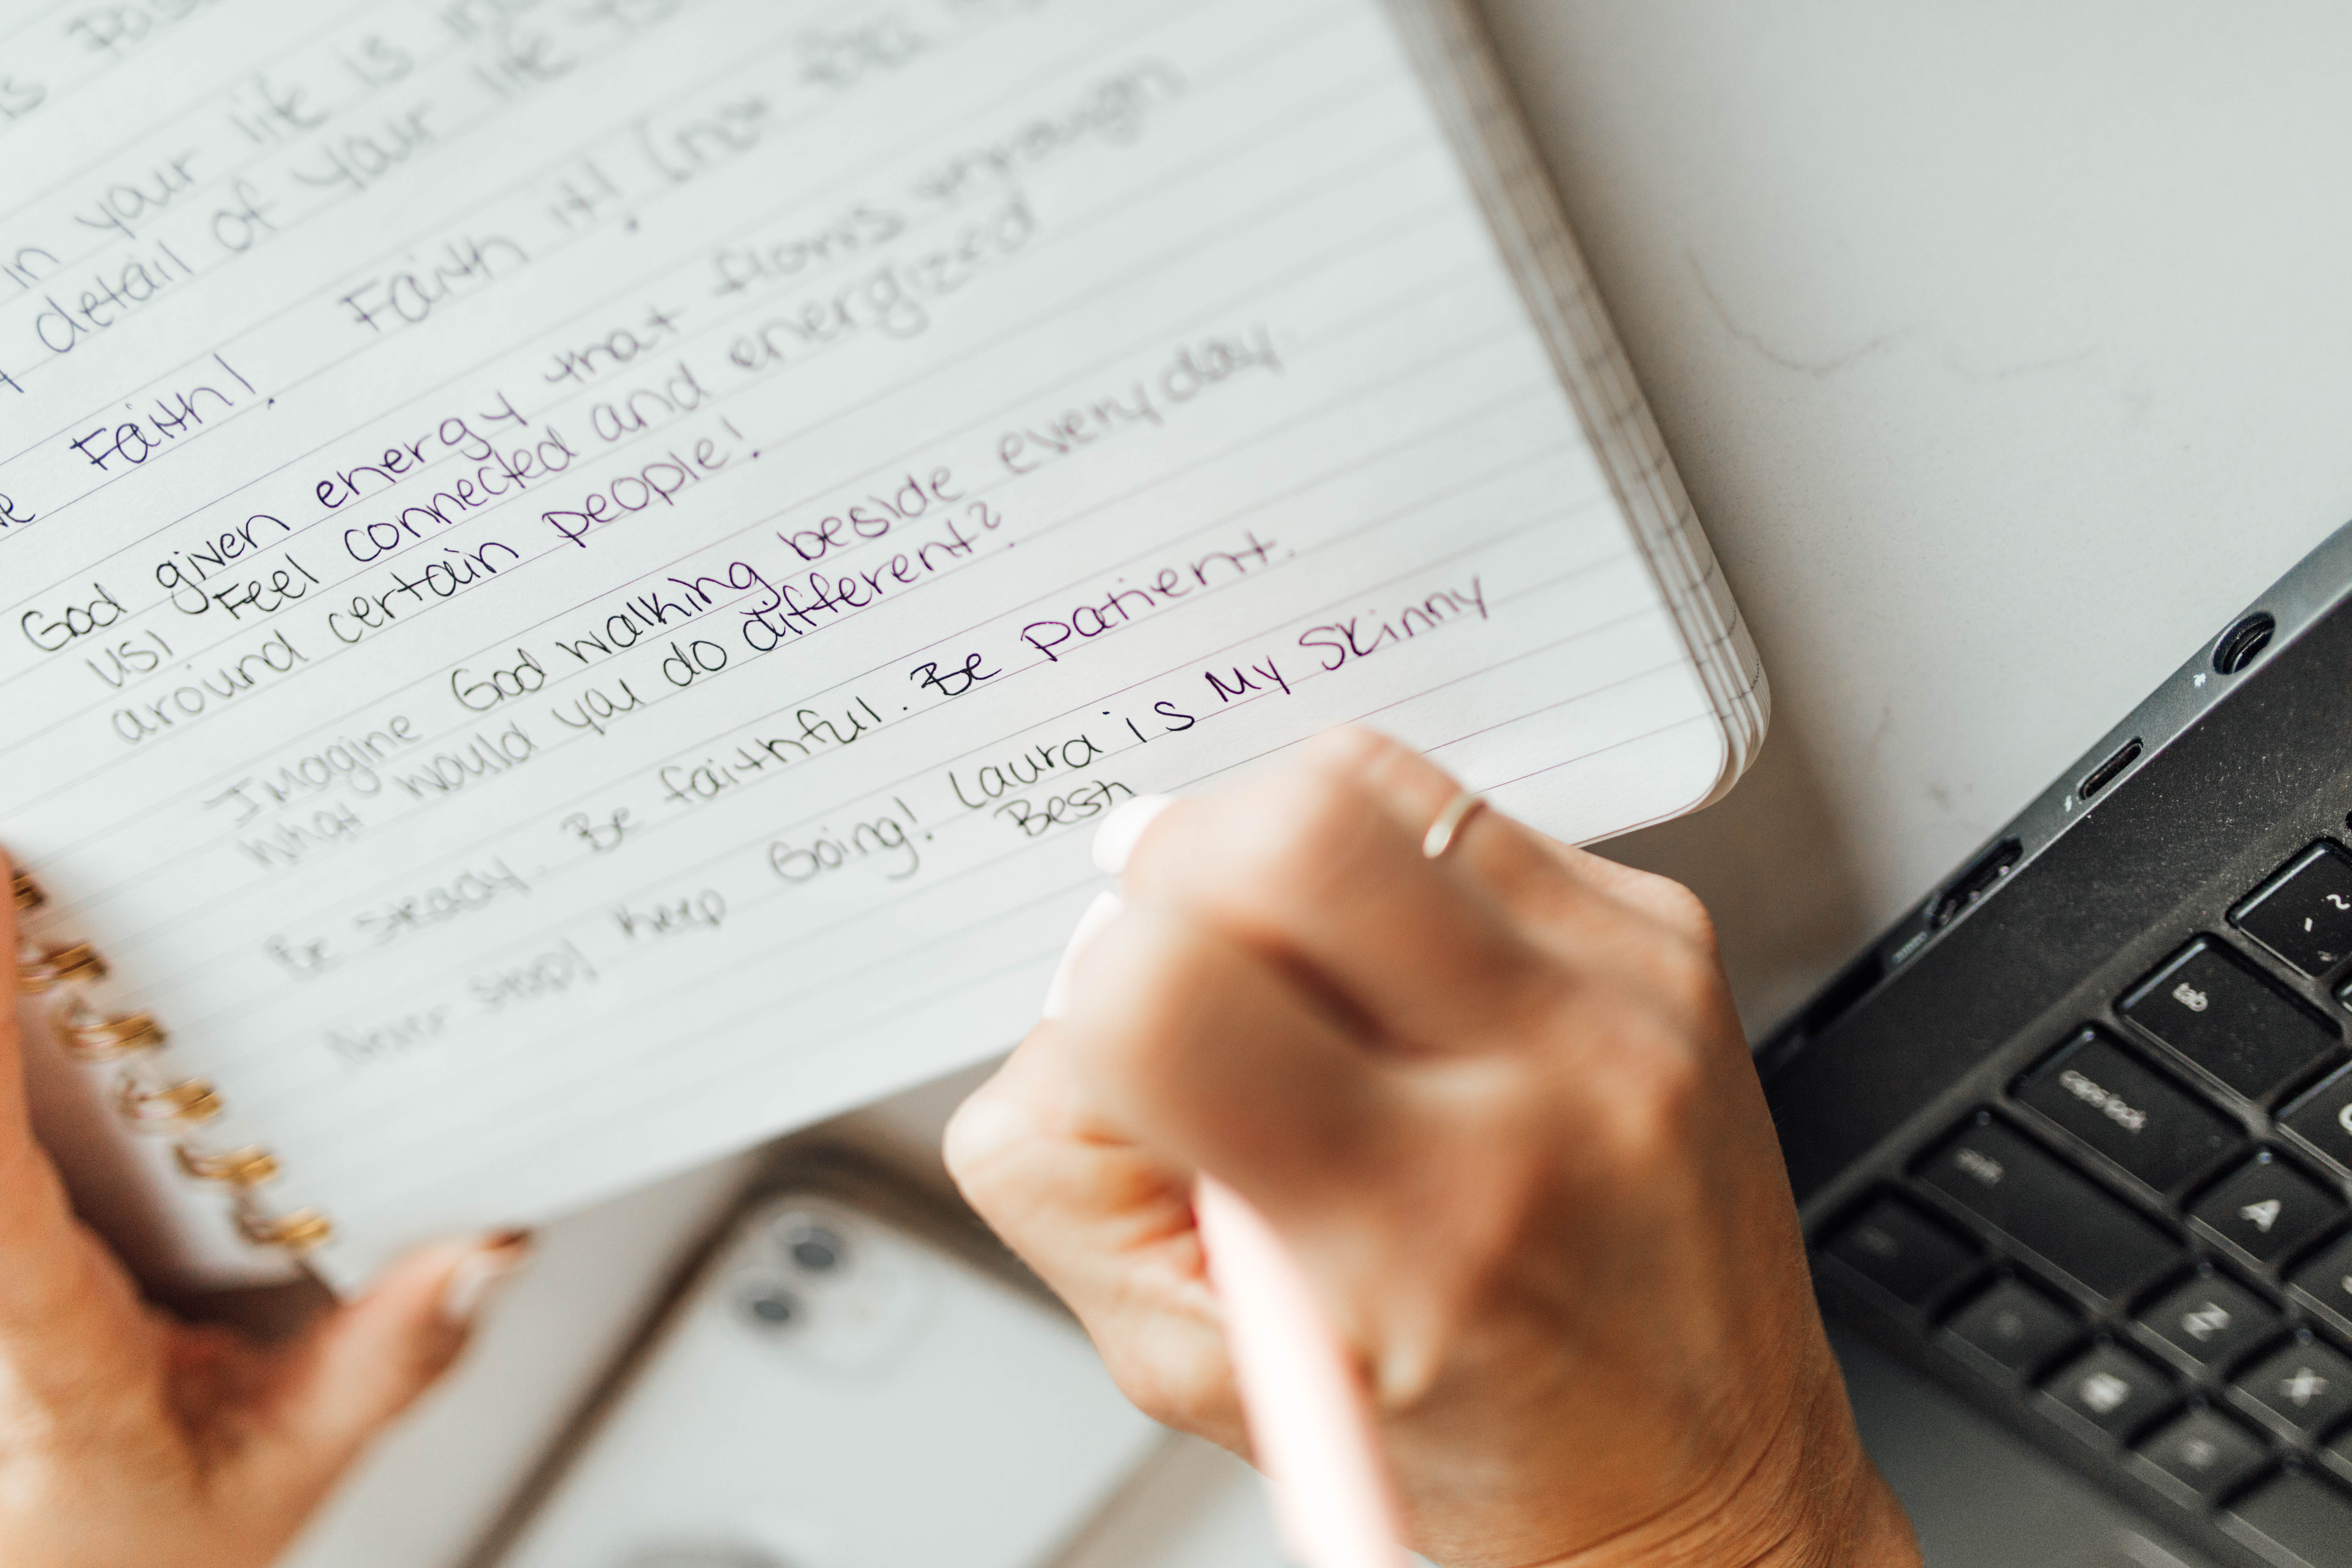 is
in your life is
detail of your life
Faith! Faith it! (not
God given energy that flows through
us! Feel connected and energized
around certain people!
Imagine God walking beside everyday.
What would you do different?
Be steady. Be faithful. Be patient.
Never stop! Keep Going! Laura is My Skinny
Besti
tab
caps lock
shift
A
Z
X